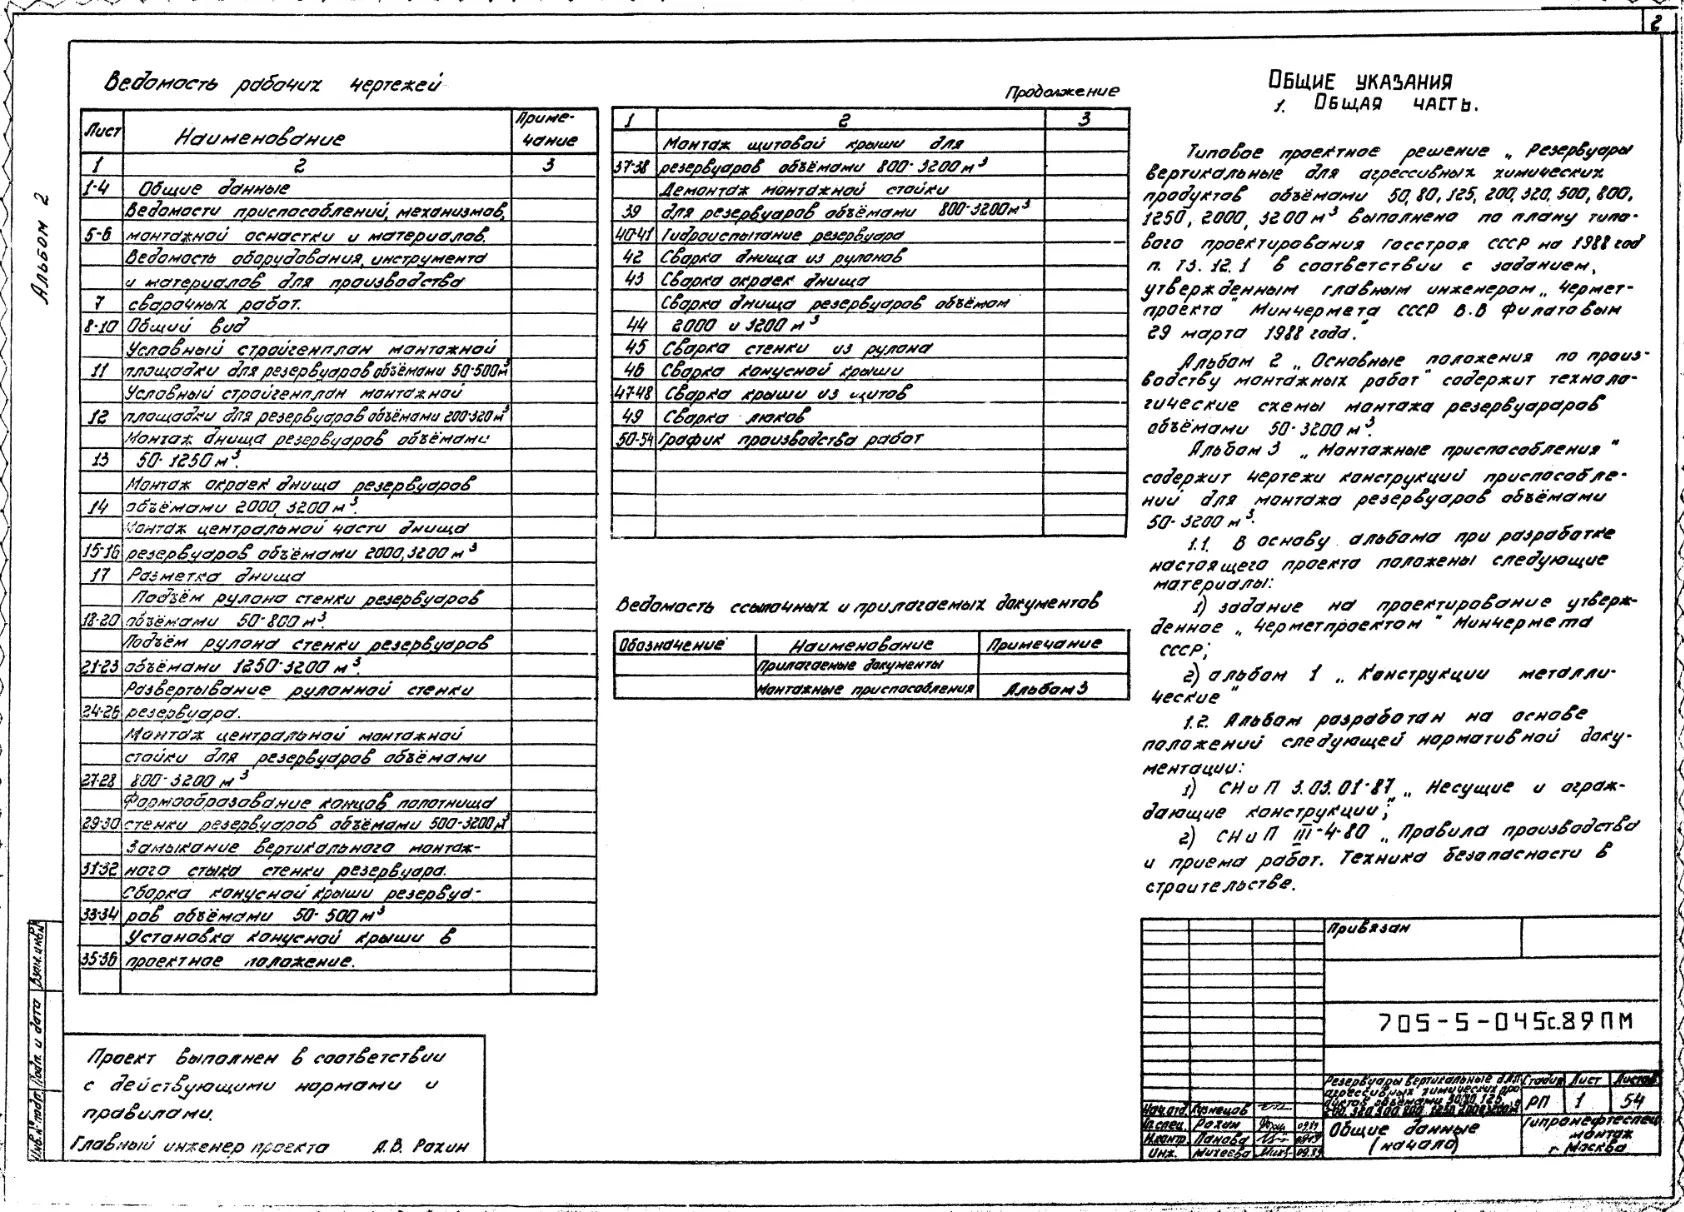 2
Альбом 2
Ведомость рабочих чертежей
Лист Наименование Приме-
чание
1 2 3
1-4 Общие данные
Ведомости приспособлений, механизмов,
5-6 монтажной оснастки и материалов.
Ведомость оборудования, инструмента
и материалов для производства
7 сварочных работ.
8-10 Общий вид
Условный стройгенплан монтажной
11 площадки для резервуаров объёмами 50-500м³
Условный стройгенплан монтажной
12 площадки для резервуаров объёмами 800-3200м³
Монтаж днища резервуаров объёмами
13 50-1250м³.
Монтаж окраек днища резервуаров
14 объёмами 2000, 3200м³.
Монтаж центральной части днища
15-16 резервуаров объёмами 2000, 3200м³
17 Разметка днища
Подъём рулона стенки резервуаров
18-20 объёмами 50-800м³.
Подъём рулона стенки резервуаров
21-23 объёмами 1250-3200м³.
Развертывание рулонной стенки
24-26 резервуара.
Монтаж центральной монтажной
стойки для резервуаров объёмами
27-28 800-3200м³
Формообразование концов полотнища
29-30 стенки резервуаров объёмами 500-3200м³
Замыкание вертикального монтаж-
31-32 ного стыка стенки резервуара.
Сборка конусной крыши резервуа-
33-34 ров объёмами 50-500м³
Установка конусной крыши в
35-36 проектное положение.
Проект выполнен в соответствии
с действующими нормами и
правилами.
Главный инженер проекта А.В. Рохин
Продолжение
1 2 3
Монтаж щитовой крыши для
37-38 резервуаров объёмами 800-3200м³
Демонтаж монтажной стойки
39 для резервуаров объёмами 800-3200м³
40-41 Гидроиспытание резервуара
42 Сварка днища из рулонов
43 Сварка окраек днища
Сварка днища резервуаров объёмом
44 2000 и 3200м³
45 Сварка стенки из рулона
46 Сварка конусной крыши
47-48 Сварка крыши из щитов
49 Сварка люков
50-54 График производства работ
Ведомость ссылочных и прилагаемых документов
Обозначение Наименование Примечание
Прилагаемые документы
Монтажные приспособления Альбом 3
Общие указания
1. Общая часть.
Типовое проектное решение „Резервуары
вертикальные для агрессивных химических
продуктов объёмами 50, 80, 125, 200, 320, 500, 800,
1250, 2000, 3200м³ выполнено по плану типо-
вого проектирования Госстроя СССР на 1988 год
п. Т3.12.1 в соответствии с заданием,
утвержденным главным инженером „Чермет-
проекта" Минчермета СССР В.В Филатовым
29 марта 1988 года."
Альбом 2 „Основные положения по произ-
водству монтажных работ" содержит техноло-
гические схемы монтажа резервуараров
объёмами 50-3200м³.
Альбом 3 „Монтажные приспособления"
содержит чертежи конструкций приспособле-
ний для монтажа резервуаров объёмами
50-3200м³.
1.1. В основу альбома при разработке
настоящего проекта положены следующие
материалы:
1) задание на проектирование утверж-
денное „Черметпроектом" Минчермета
СССР;
2) альбом 1 „Конструкции металли-
ческие"
1.2. Альбом разработан на основе
положений следующей нормативной доку-
ментации:
1) СНиП 3.03.01-87 „Несущие и ограж-
дающие конструкции";
2) СНиП III-4-80 „Правила производства
и приема работ. Техника безопасности в
строительстве.
Привязан
705-5-045с.89ПМ
Резервуары вертикальные для
агрессивных химических про-
дуктов объёмами 50,80,125,
200,320,500,800,1250,2000,3200м³
Стадия Лист Листов
РП 1 54
Нач.отд Кузнецов
Гл.спец. Рохин 09.89
Н.контр Панова 09.89
Инж. Михеева 09.89
Общие данные
(начало)
Гипронефтеспец-
монтаж
г. Москва
Инв.№ подл. Подп. и дата Взам.инв.№